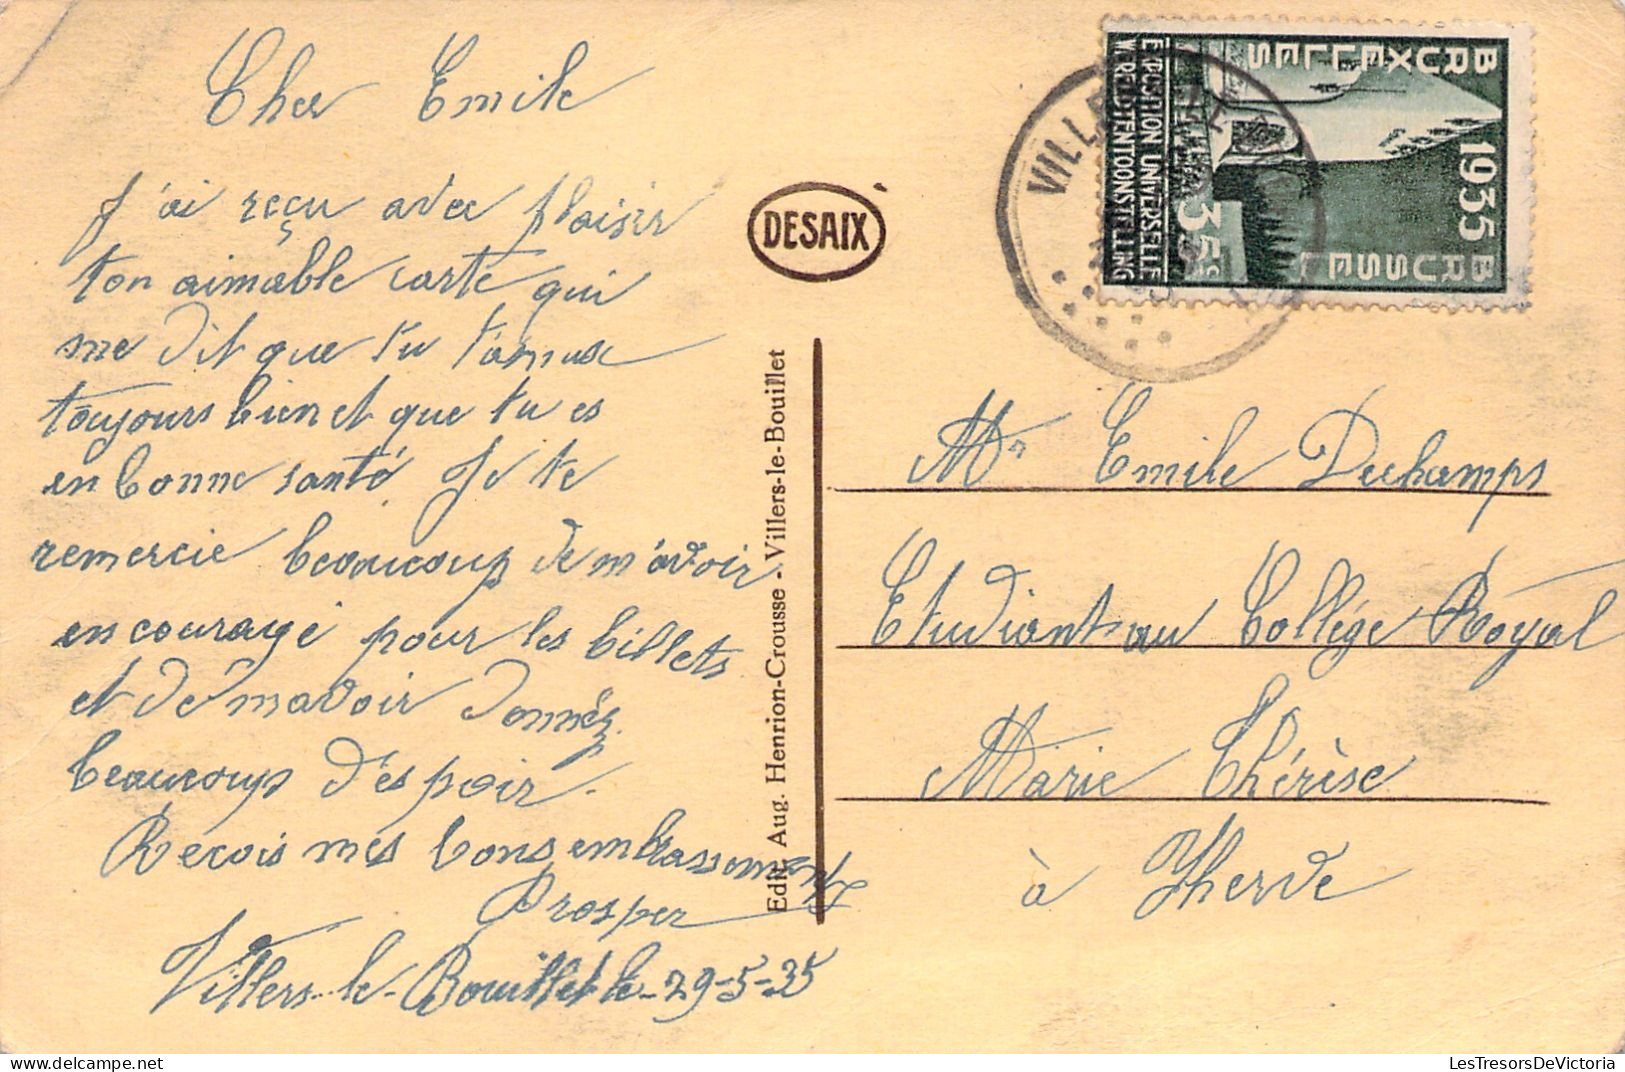 Cher Emile
J'ai reçu avec plaisir
ton aimable carte qui
me dit que tu t'amuse
toujours bien et que tu es
en bonne santé Je te
remercie beaucoup de m'avoir
encouragé pour les billets
et de m'avoir donnéz
beaucoup d'espoir.
Recois mes bons embrassements
Prosper
Villers-le-Bouillet le 29-5-35
DESAIX
Edit. Aug. Henrion-Crousse - Villers-le-Bouillet
BRUXELLES 1935 BRUSSEL
EXPOSITION UNIVERSELLE
WERELDTENTOONSTELLING
35c
Mr Emile Dechamps
Etudiant au Collége Royal
Marie Thérèse
à Herve
LesTresorsDeVictoria